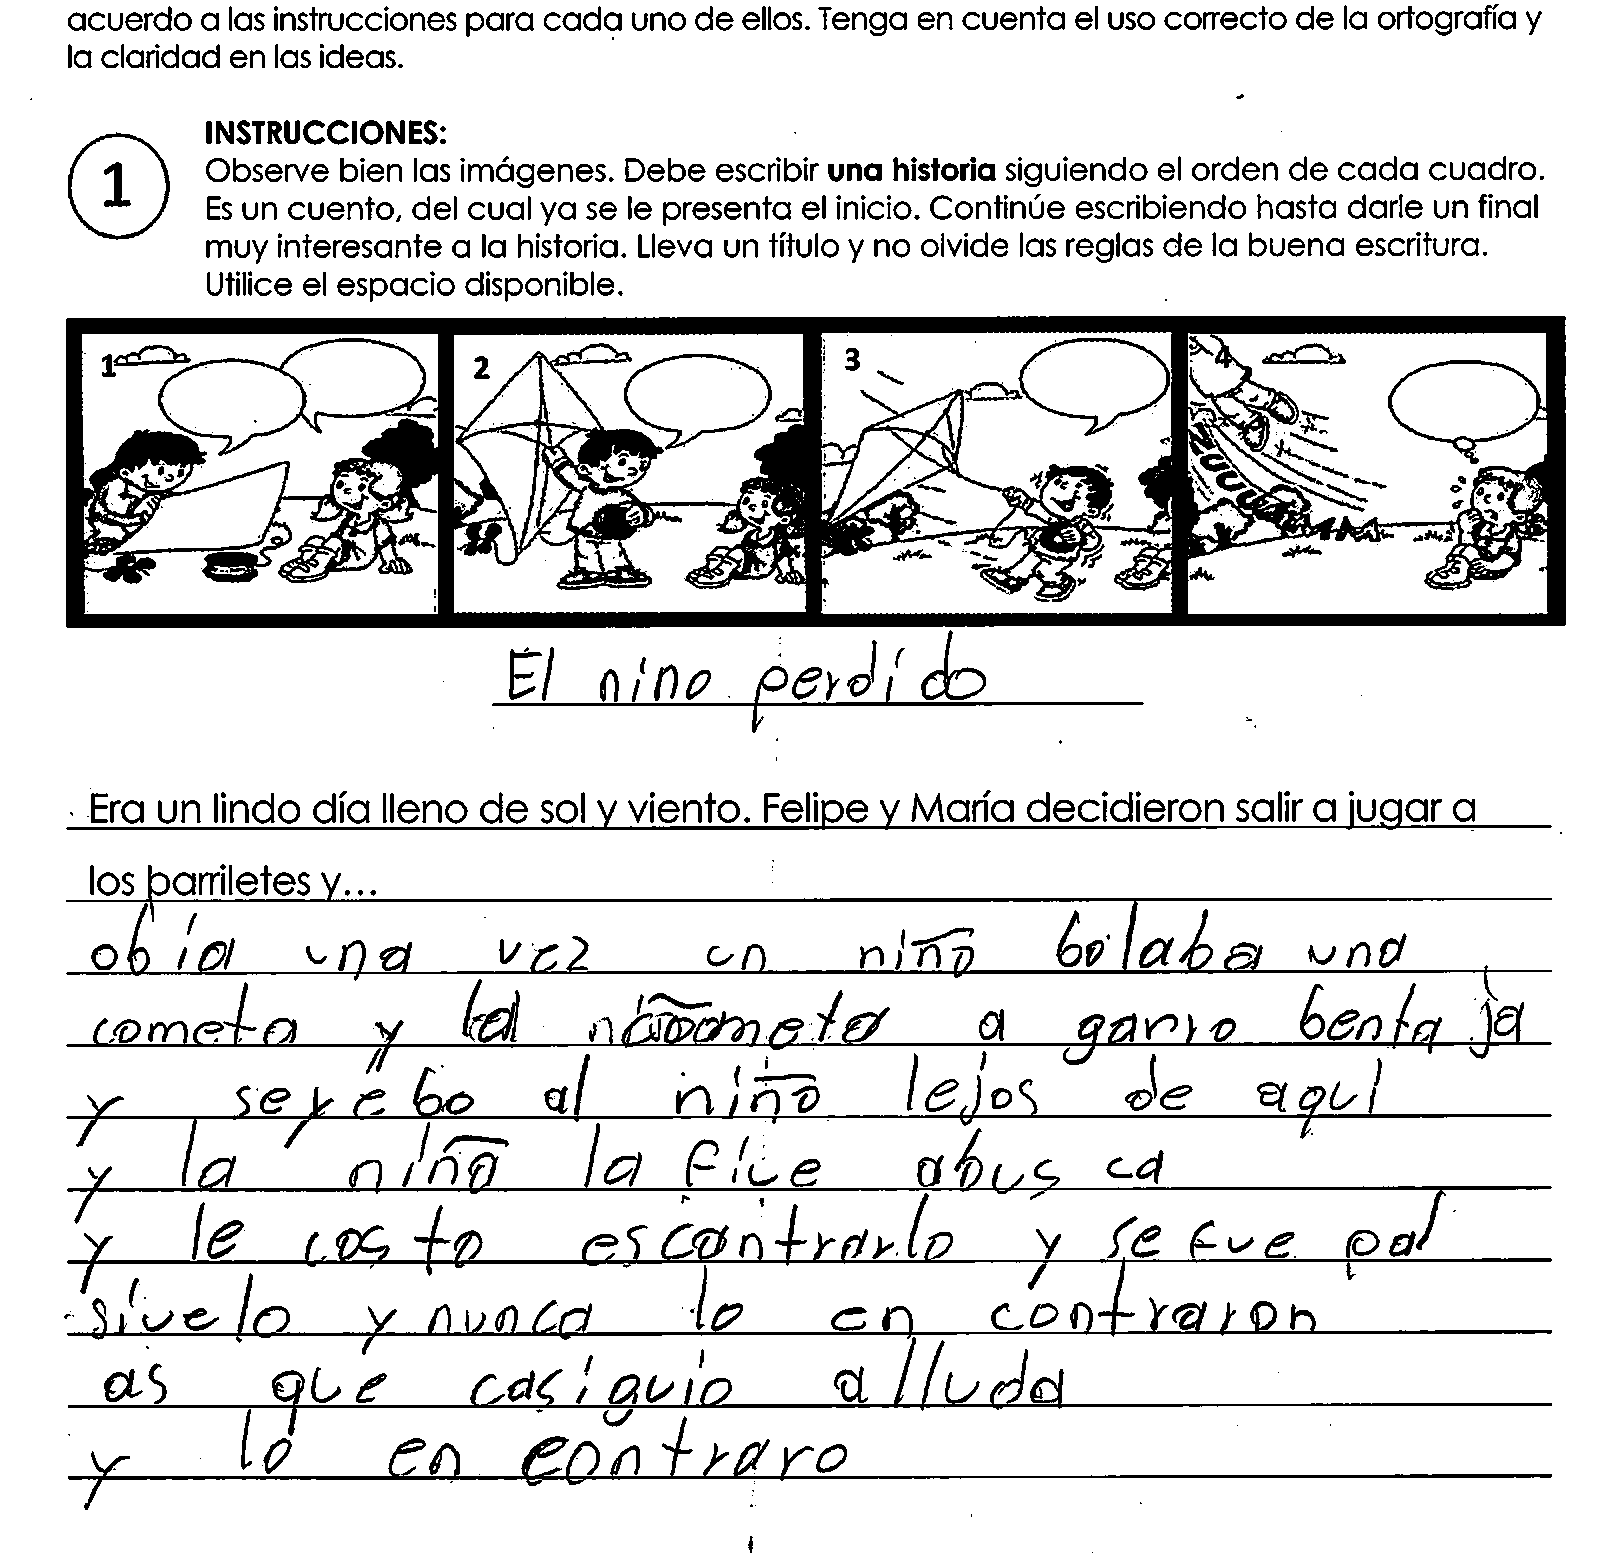 acuerdo a las instrucciones para cada uno de ellos. Tenga en cuenta el uso correcto de la ortografía y
la claridad en las ideas.
1
INSTRUCCIONES:
Observe bien las imágenes. Debe escribir una historia siguiendo el orden de cada cuadro.
Es un cuento, del cual ya se le presenta el inicio. Continúe escribiendo hasta darle un final
muy interesante a la historia. Lleva un título y no olvide las reglas de la buena escritura.
Utilice el espacio disponible.
1 2 3 4
ZUUUU
El nino perdido
Era un lindo día lleno de sol y viento. Felipe y María decidieron salir a jugar a
los barriletes y...
obia una vez un niño bolaba una
cometa y la a garro benta ja
y se yebo al niño lejos de aqui
y la niña la fue abus ca
y le costo escontrarlo y se fue pal
sivelo y nunca lo en contraron
as que casiguio alluda
y lo en contraro